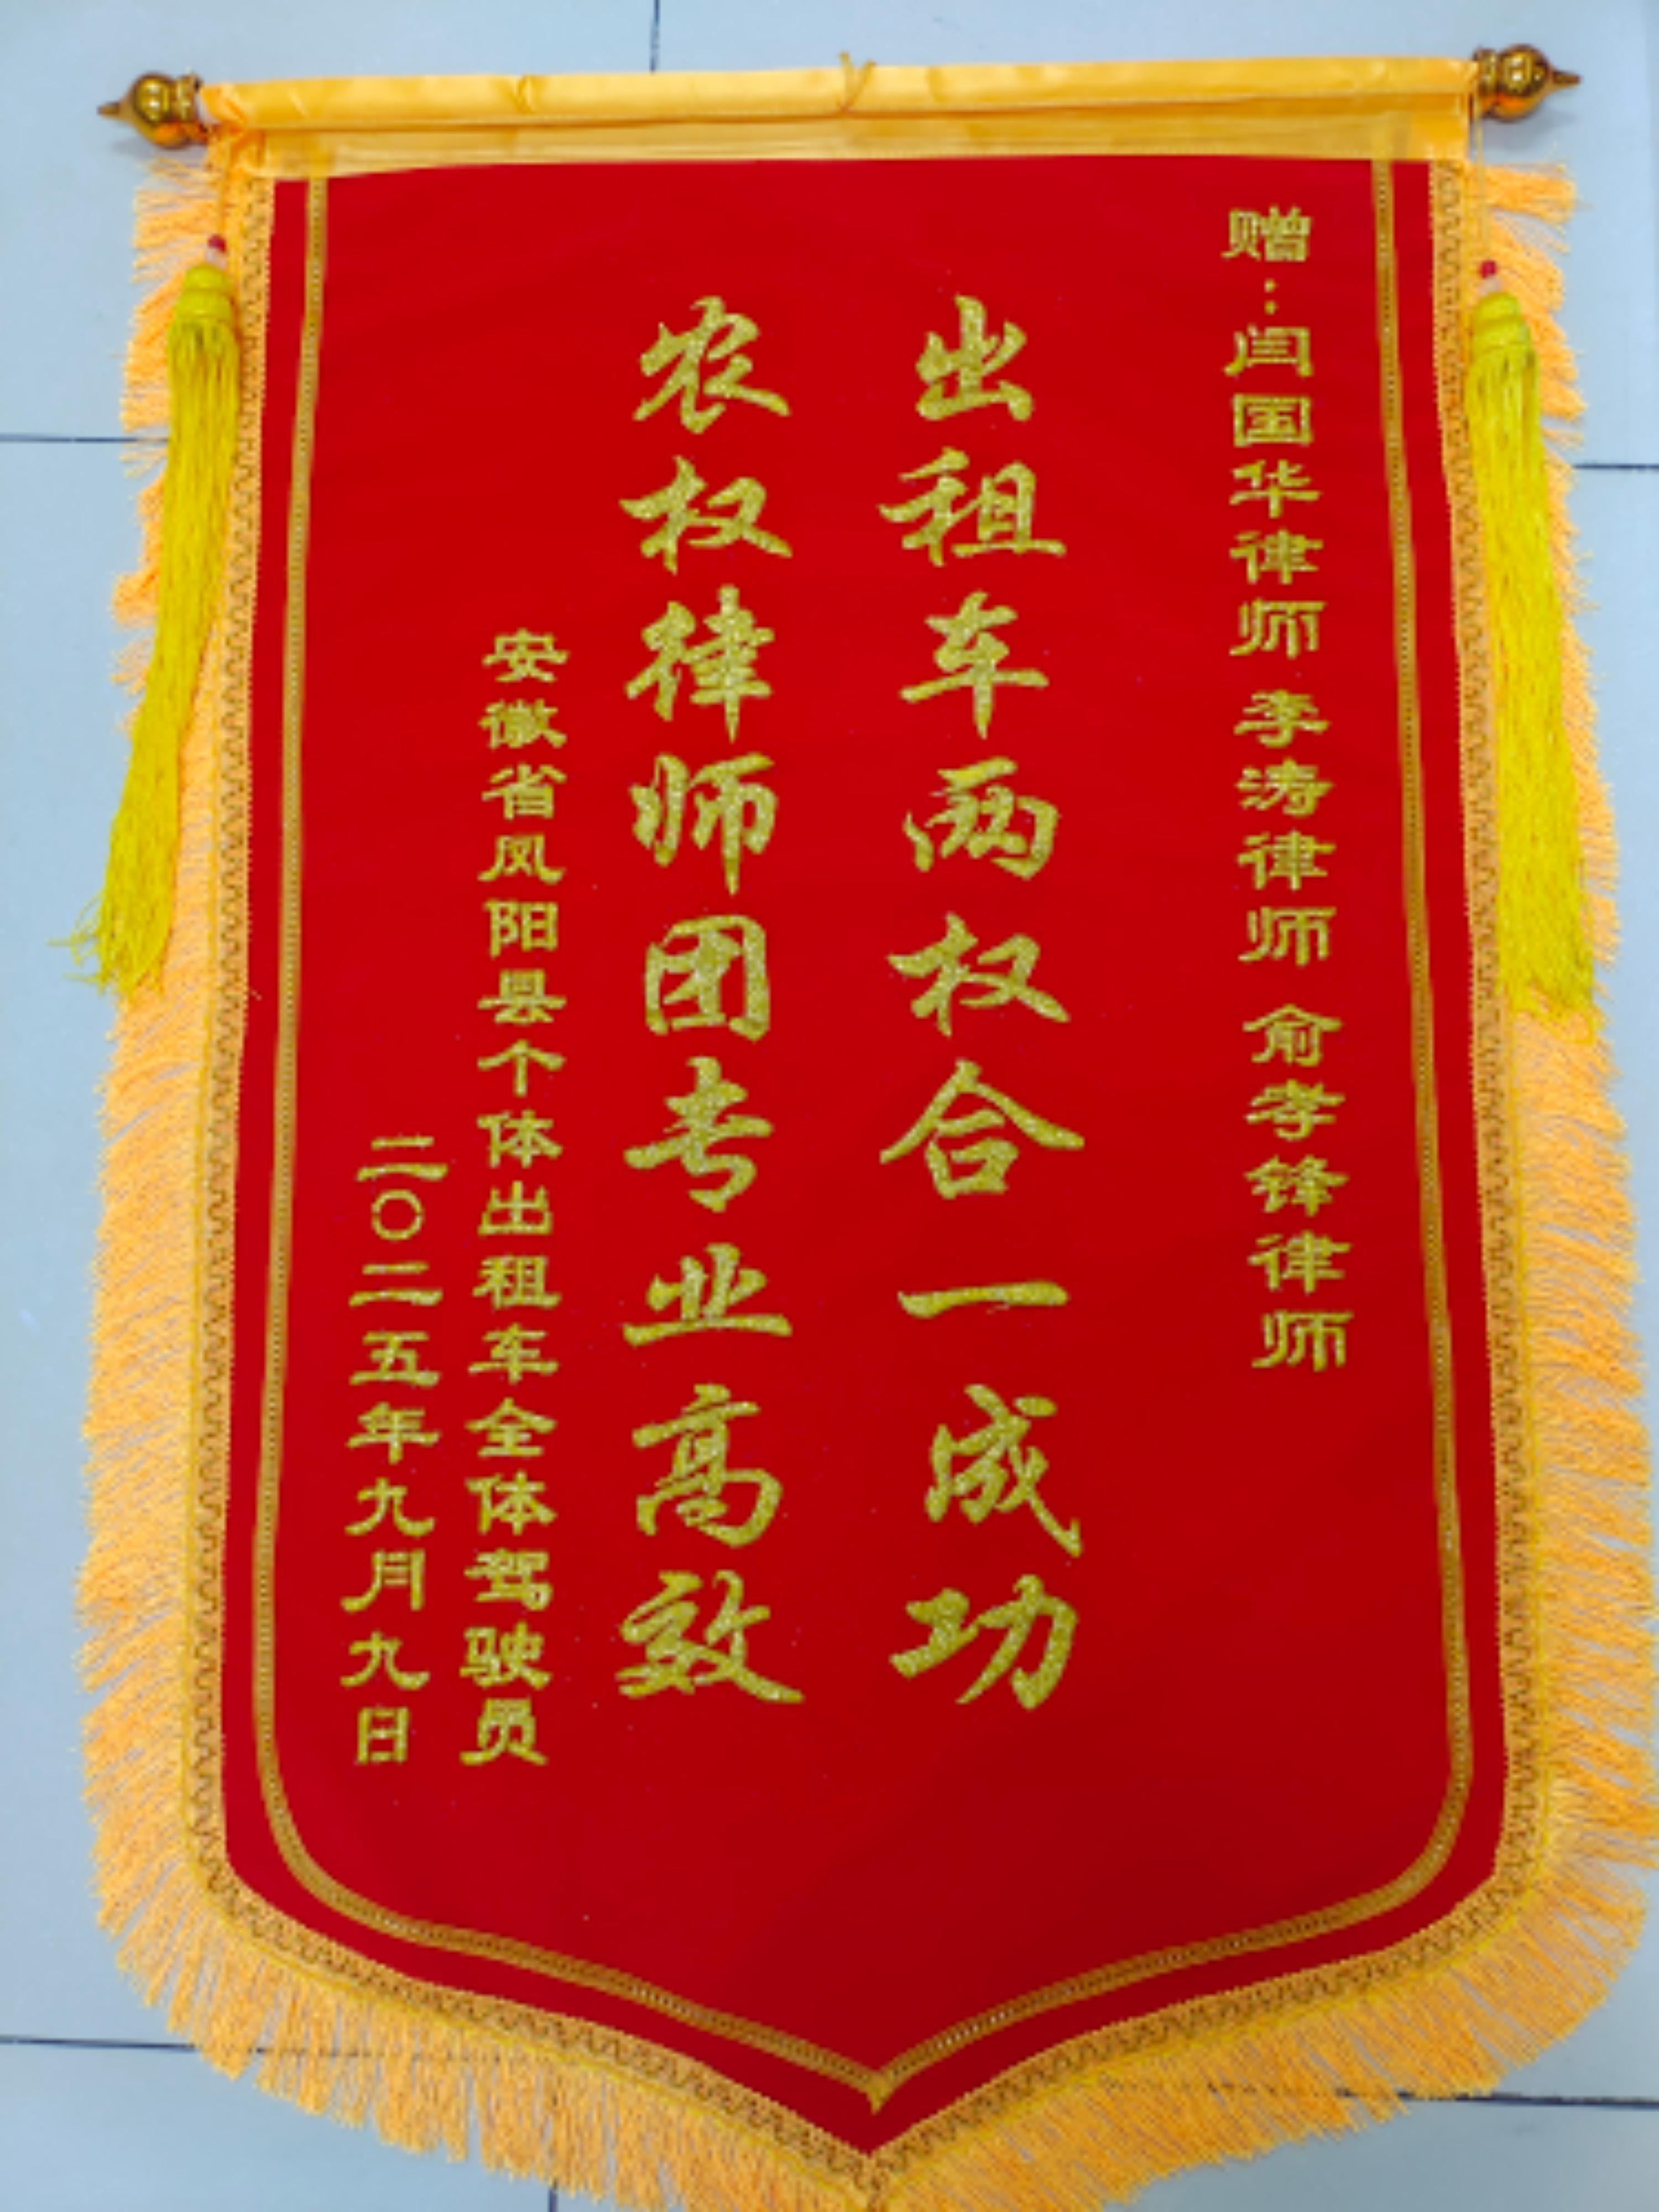 赠：闫国华律师 李涛律师 俞孝锋律师
出租车两权合一成功
农权律师团专业高效
安徽省凤阳县个体出租车全体驾驶员
二〇二五年九月九日